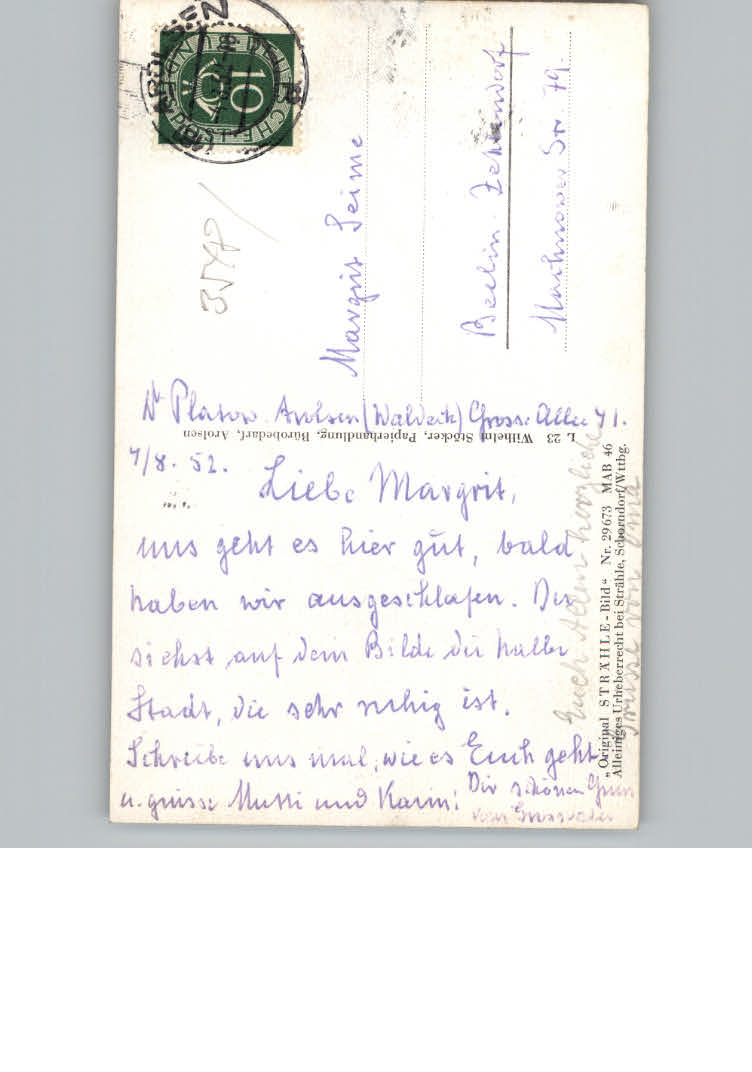 DEUTSCHE POST
10
AROLSEN
Margrit Seime
Berlin-Zehlendorf
Machnower Str. 79.
Dr Platow. Arolsen (Waldeck) Grosse Allee 41.
L 23 Wilhelm Stöcker, Papierhandlung, Bürobedarf, Arolsen
4/8. 52.
Liebe Margrit,
uns geht es hier gut, bald
haben wir ausgeschlafen. Du
siehst auf dem Bilde die halbe
Stadt, die sehr ruhig ist.
Schreibe uns mal, wie es Euch geht
u. grüsse Mutti und Karin! Dir schönen Gruss
von Grossvater
Euch Allen herzliche
Grüsse von Oma
„Original STRÄHLE-Bild“ Nr. 29673 MAB 46
Alleiniges Urheberrecht bei Strähle, Schorndorf/Wttbg.